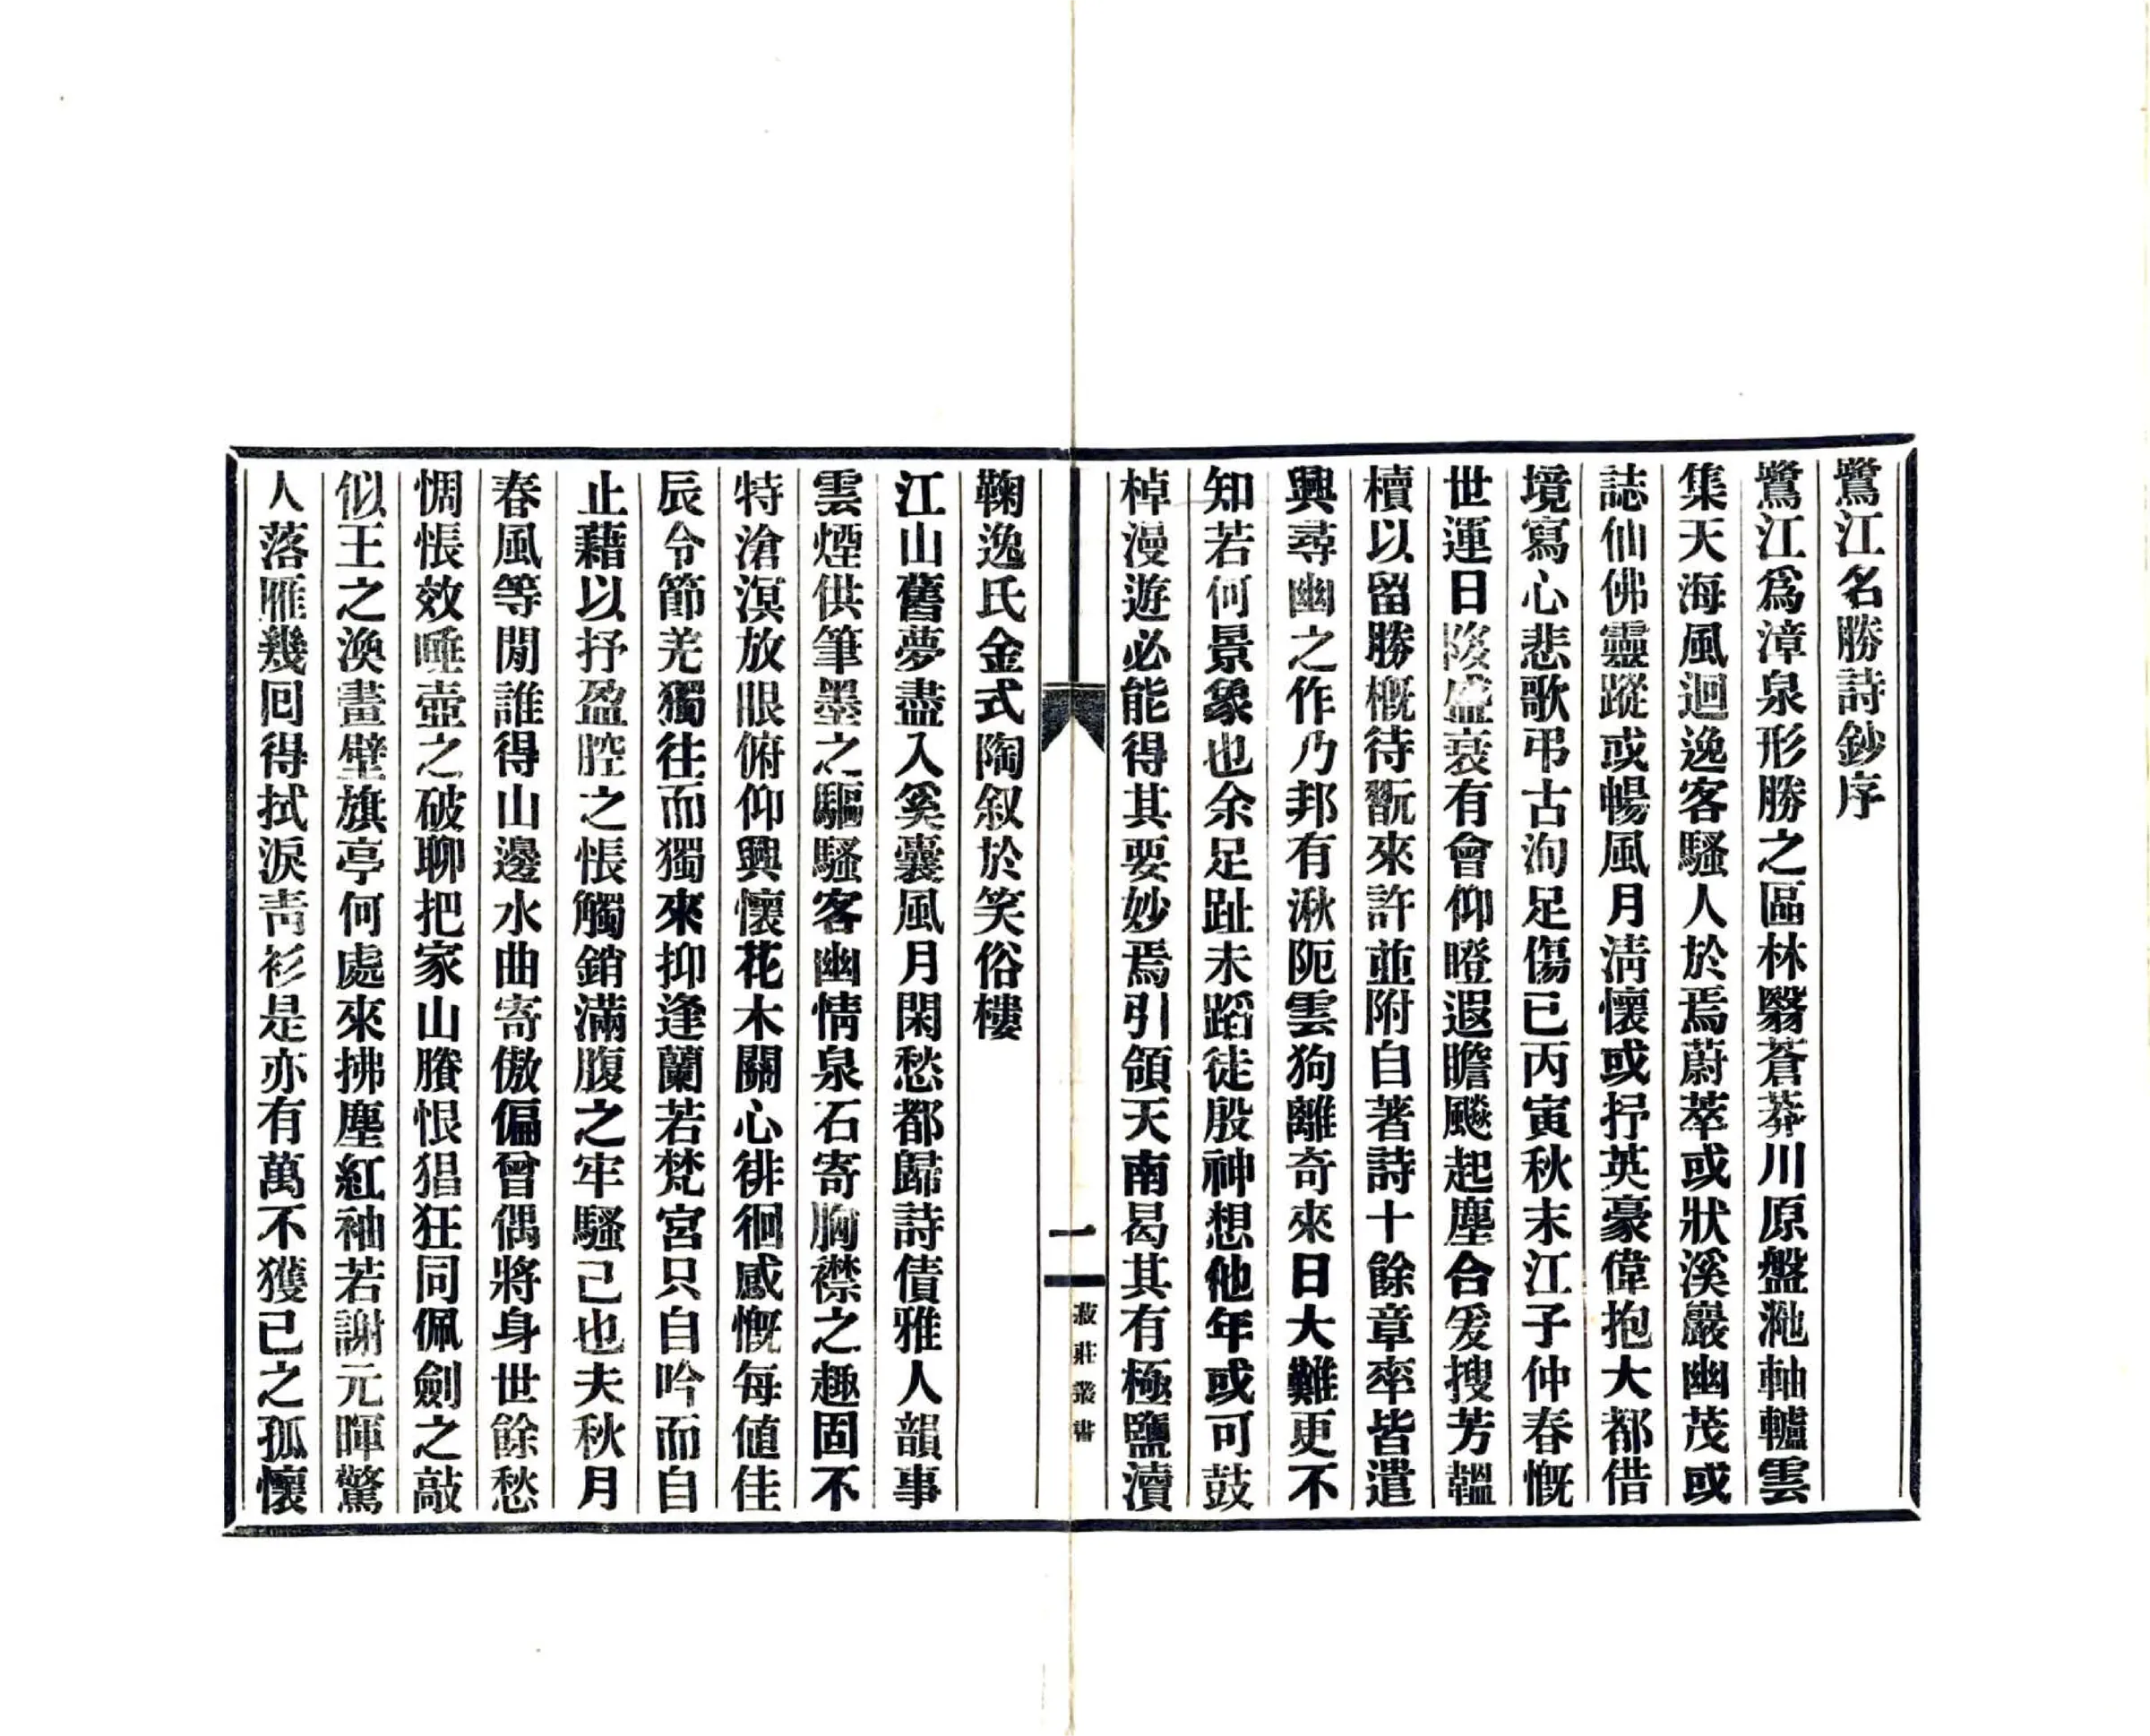 鷺江名勝詩鈔序
鷺江爲漳泉形勝之區林翳蒼莽川原盤灺軸轤雲
集天海風迴逸客騷人於焉蔚萃或狀溪巖幽茂或
誌仙佛靈蹤或暢風月淸懷或抒英豪偉抱大都借
境寫心悲歌弔古洵足傷已丙寅秋末江子仲春慨
世運日陵盛衰有會仰瞪遐瞻飈起塵合爰搜芳韞
櫝以留勝概待翫來許並附自著詩十餘章率皆遣
興尋幽之作乃邦有湫阨雲狗離奇來日大難更不
知若何景象也余足趾未蹈徒殷神想他年或可鼓
棹漫遊必能得其要妙焉引領天南曷其有極鹽瀆
鞠逸氏金式陶叙於笑俗樓
一
菽莊叢書
江山舊夢盡入奚囊風月閑愁都歸詩債雅人韻事
雲煙供筆墨之驅騷客幽情泉石寄胸襟之趣固不
特滄溟放眼俯仰興懷花木關心徘徊感慨每値佳
辰令節羌獨往而獨來抑逢蘭若梵宮只自吟而自
止藉以抒盈腔之悵觸銷滿腹之牢騷己也夫秋月
春風等閒誰得山邊水曲寄傲偏曾偶將身世餘愁
惆悵效唾壺之破聊把家山賸恨猖狂同佩劍之敲
似王之渙畫壁旗亭何處來拂塵紅袖若謝元暉驚
人落雁幾回得拭淚靑衫是亦有萬不獲已之孤懷